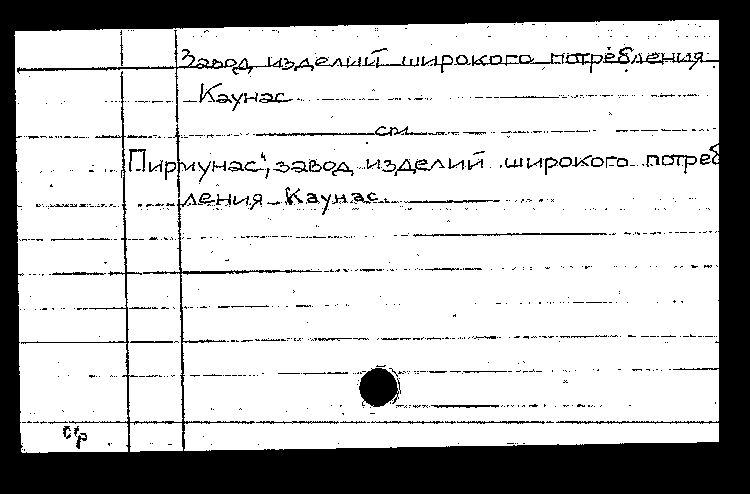 Завод изделий широкого потребления
Каунас
см.
Пирмунас", завод изделий широкого потреб
ления Каунас.